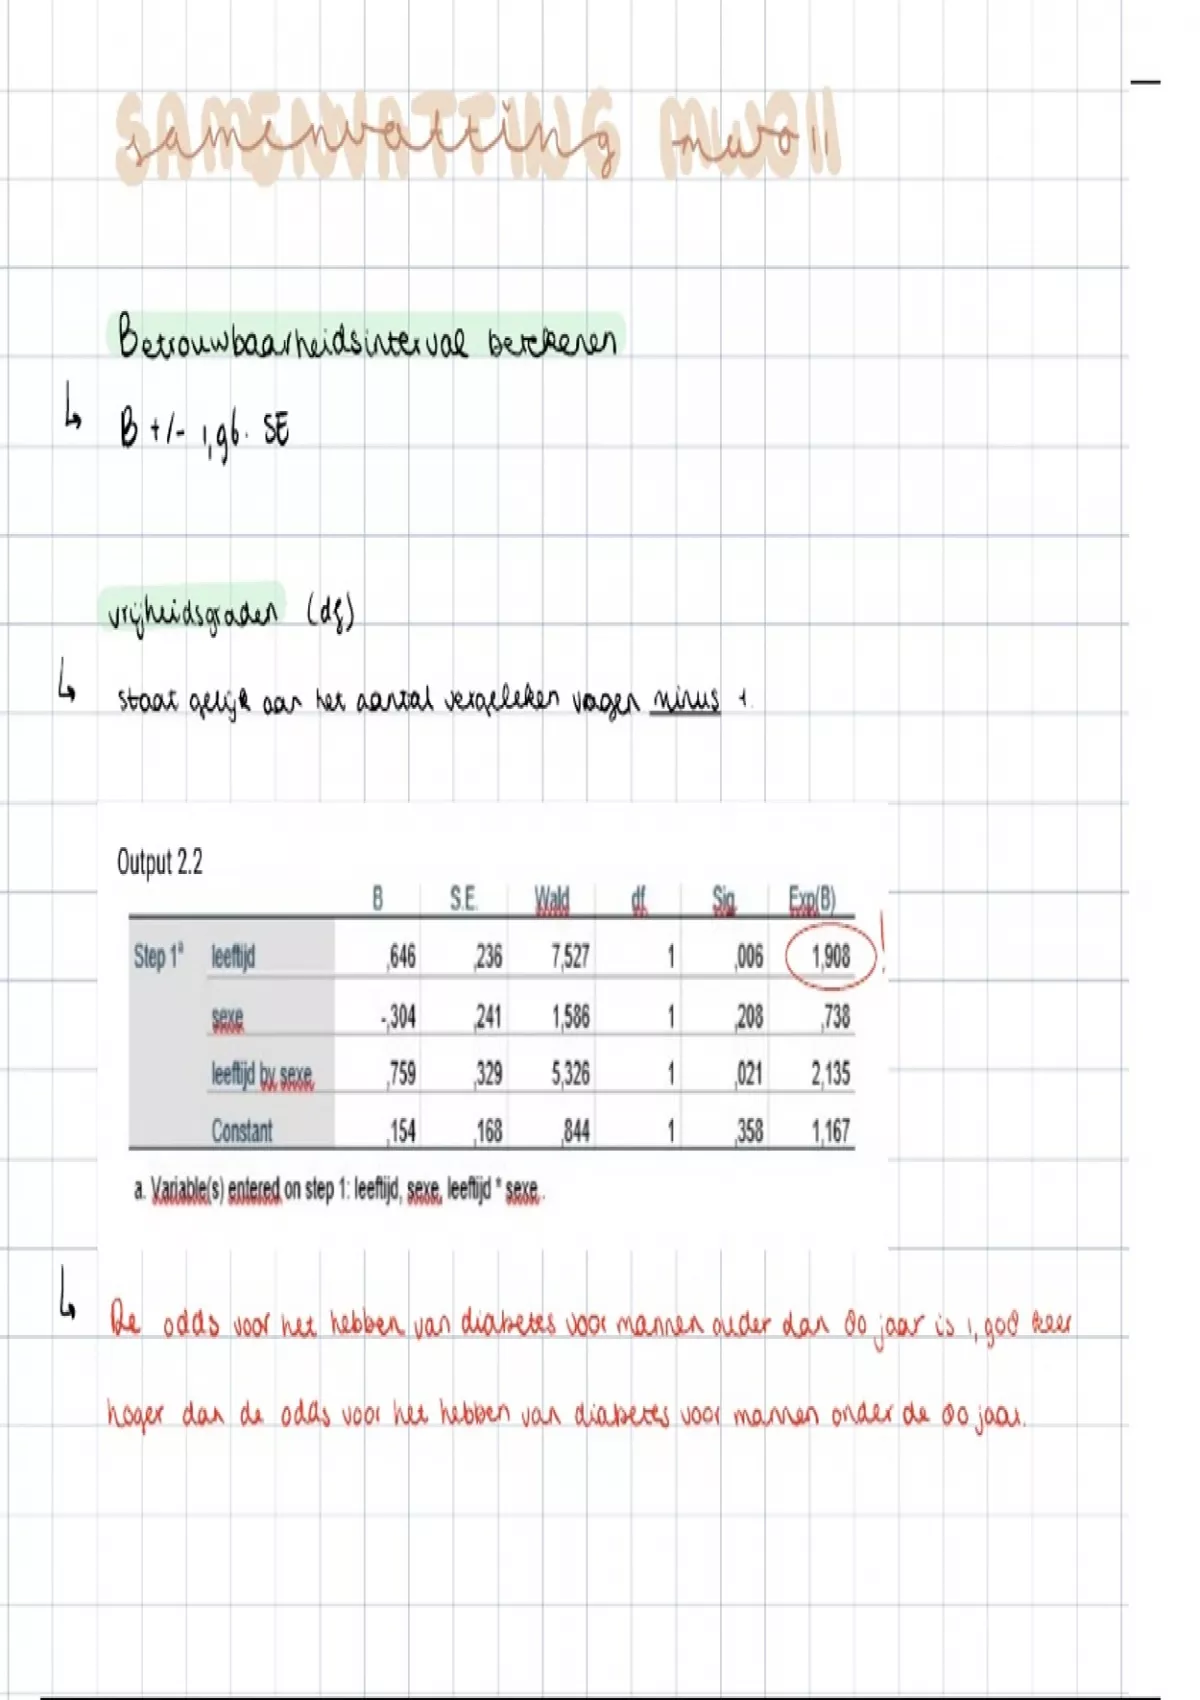 SAMENVATTING MWO11
samenvatting mwo11
Betrouwbaarheidsinterval berekenen
↳ B +/- 1,96. SE
vrijheidsgraden (df)
↳ staat gelijk aan het aantal vergeleken vragen minus 1.
Output 2.2
B S.E. Wald df Sig. Exp(B)
Step 1ª leeftijd ,646 ,236 7,527 1 ,006 1,908 !
sexe -,304 ,241 1,586 1 ,208 ,738
leeftijd by sexe ,759 ,329 5,326 1 ,021 2,135
Constant ,154 ,168 ,844 1 ,358 1,167
a. Variable(s) entered on step 1: leeftijd, sexe, leeftijd * sexe .
↳ De odds voor het hebben van diabetes voor mannen ouder dan 80 jaar is 1,908 keer
hoger dan de odds voor het hebben van diabetes voor mannen onder de 80 jaar.